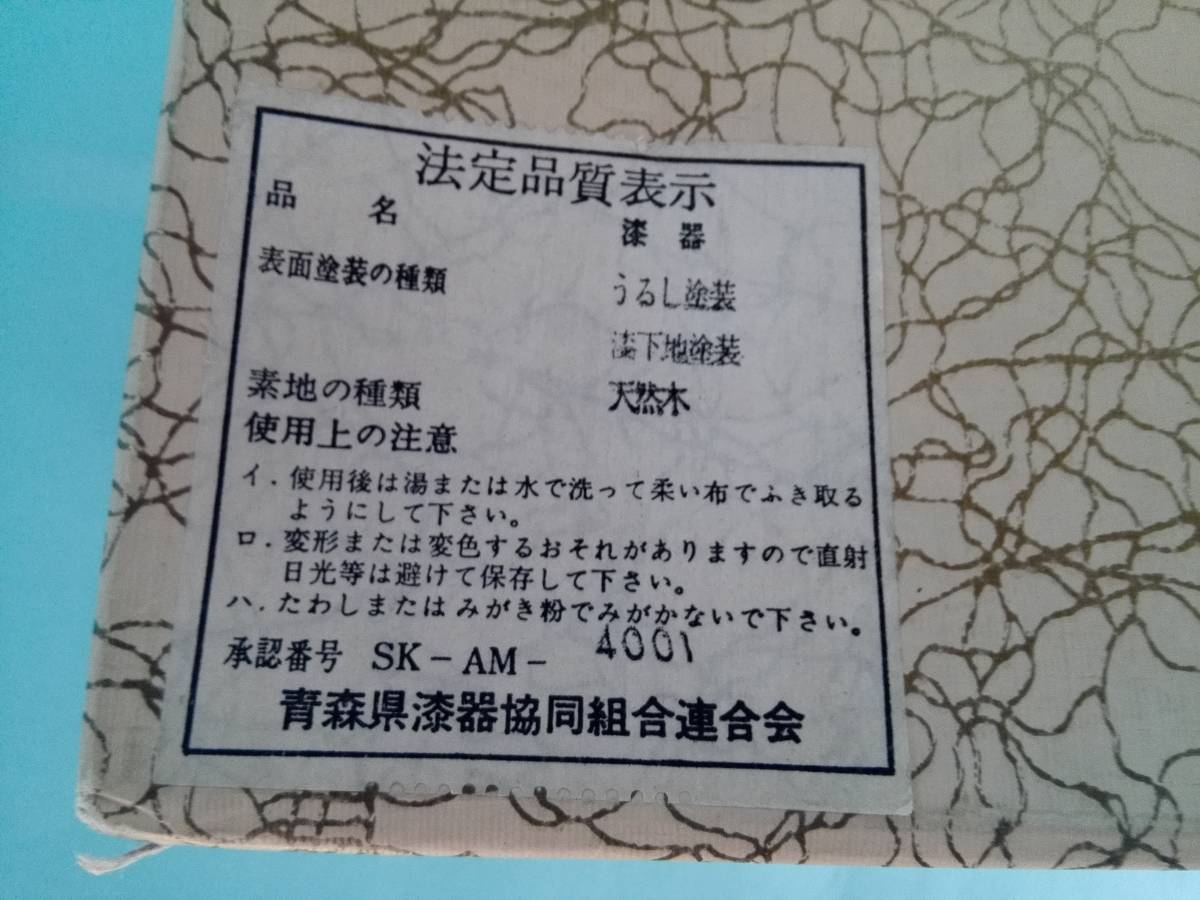 法定品質表示
品名 漆器
表面塗装の種類 うるし塗装
漆下地塗装
素地の種類 天然木
使用上の注意
イ.使用後は湯または水で洗って柔い布でふき取る
ようにして下さい。
ロ.変形または変色するおそれがありますので直射
日光等は避けて保存して下さい。
ハ.たわしまたはみがき粉でみがかないで下さい。
承認番号 SK-AM-4001
青森県漆器協同組合連合会